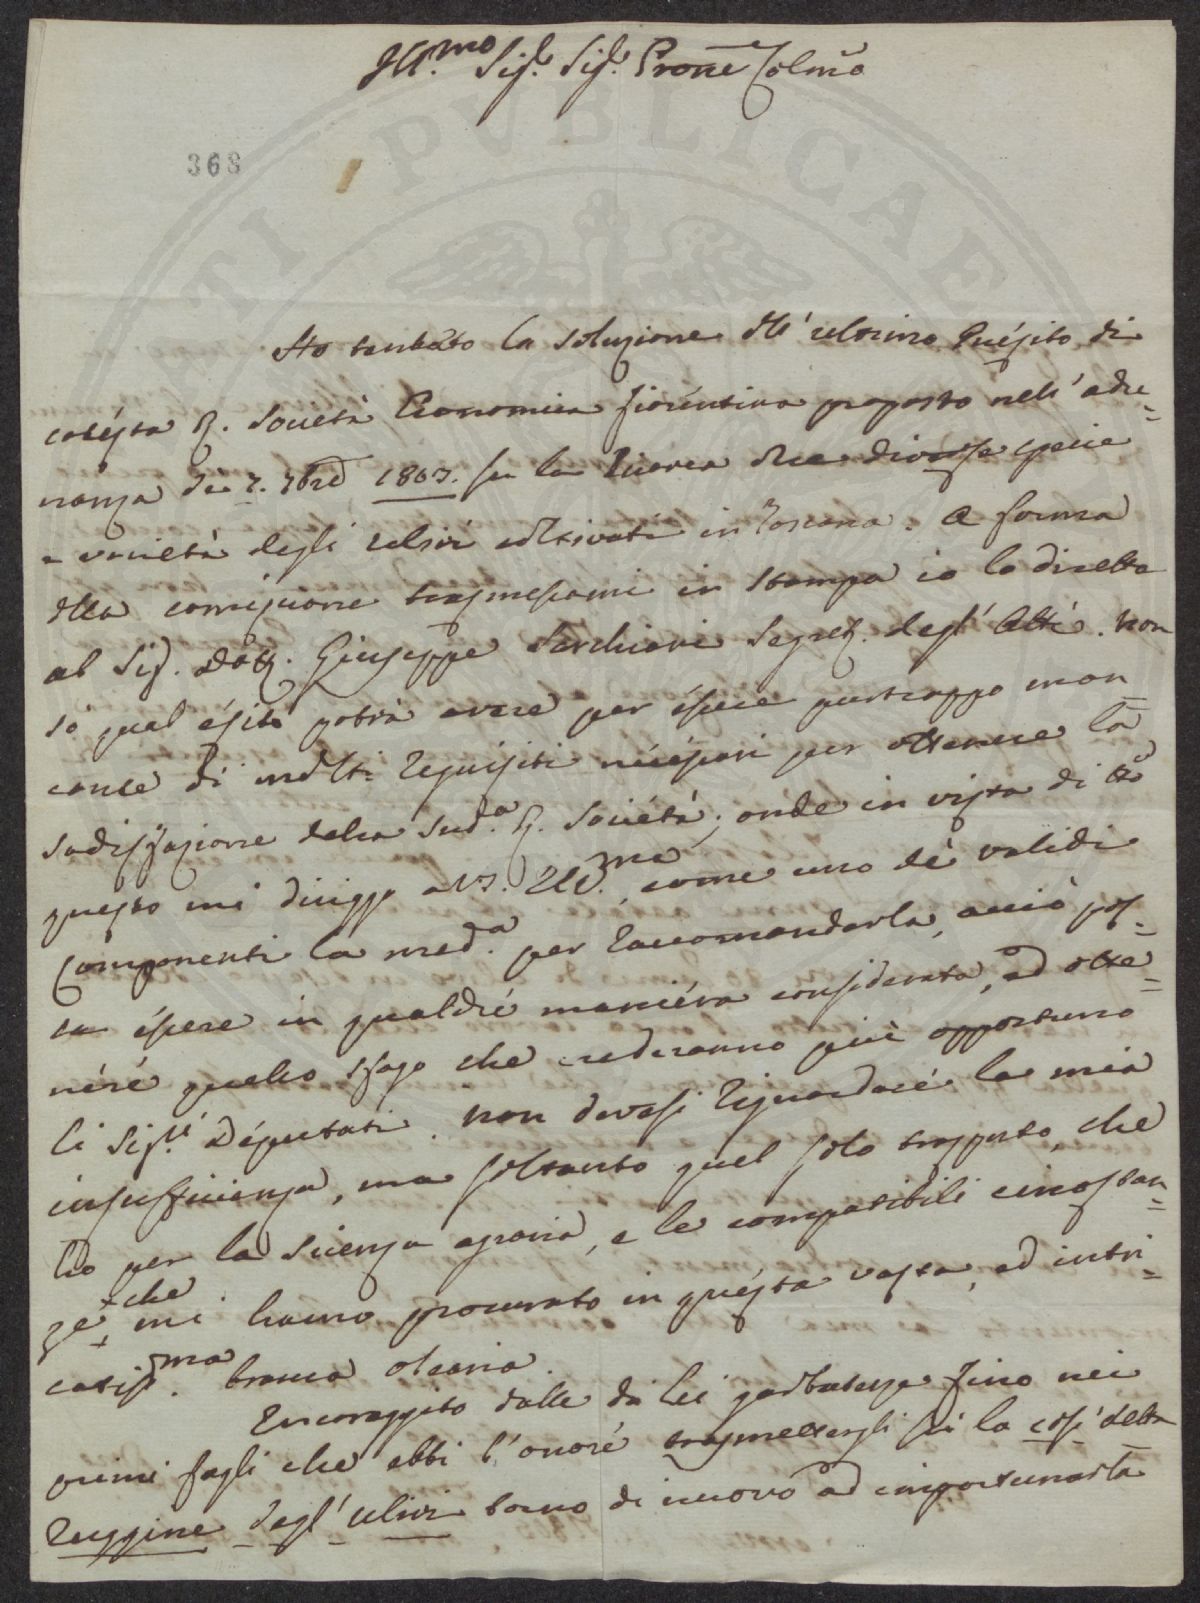 Ill.mo Sig.r Sig.r Prone Colmo
368
Ho tentato la soluzione dll' ultimo Quésito di
cotésta R. Società Economica fiorentina proposto nell' adu=
nanza de' 7. 7bre 1803. su la Ricerca dlle diverse specie
e varietà degli ulivi coltivati in Toscana. A forma
dlla comissione trasmessami in stampa io la diretta
al Sig. Dott. Giuseppe Sarchiani Segret. degl' Atti. Non
sò qual ésito potrà avere per éssere purtroppo man
cante di molti requisiti necéssari per ottenere la
sodisfazione della Sud.a R. Società; onde in vista di tto
questo mi dirigo a V.S. Ill.ma, come uno de' validi
Componenti la med.a per raccomandarla, acciò pos=
sa éssere in qualché maniéra considerata, ad otte=
néré quello sfogo che crederanno più opportuno
li Sig.ri Députati. Non dévesi riguardaré la mia
insufficienza, ma soltanto quel solo trasporto, che
ho per la scienza agraria, e le compatibili circostan=
ze, che mi hanno procurato in questa vasta, ed intri=
catiss.ma branca olearia.
Incoraggito dalle di lei garbatezze fino nei
primi fogli che ebbi l' onoré trasmettergli su la così detta
Ruggine degl' ulivi torno di nuovo ad importunarla